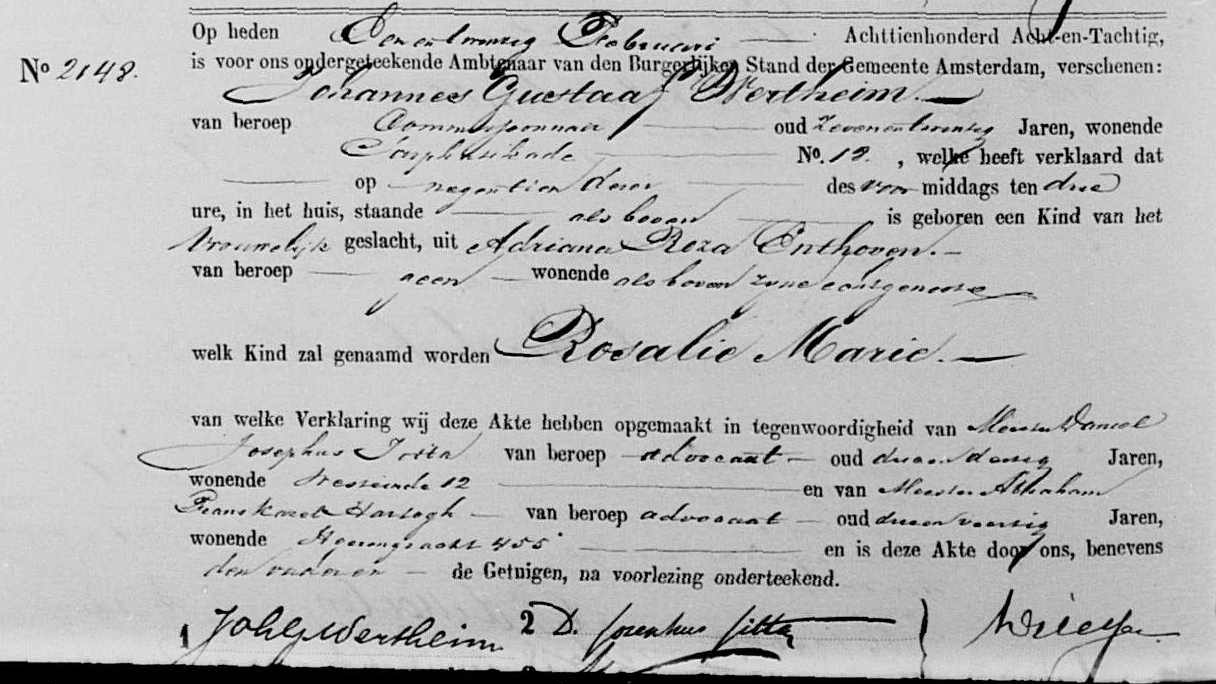 Op heden Een en twintig Februari Achttienhonderd Acht-en-Tachtig,
No 2148. is voor ons ondergeteekende Ambtenaar van den Burgerlijken Stand der Gemeente Amsterdam, verschenen:
Johannes Gustaaf Wertheim.
van beroep Commissionnair oud Zevenentwintig Jaren, wonende
No. 12. , welke heeft verklaard dat
op negentien dezer des voor middags ten drie
ure, in het huis, staande als boven is geboren een Kind van het
Vrouwelijk geslacht, uit Adriana Reza Enthoven.
van beroep geen wonende als boven zyne echtgenoote
welk Kind zal genaamd worden Rosalie Marie.
van welke Verklaring wij deze Akte hebben opgemaakt in tegenwoordigheid van Meester Daniel
Josephus Jitta van beroep advocaat oud drie en dertig Jaren,
wonende 12 en van Meester Abraham
Frans Karel Hartogh van beroep advocaat oud drie en veertig Jaren,
wonende Heerengracht 455 en is deze Akte door ons, benevens
den vader en de Getuigen, na voorlezing onderteekend.
Joh G Wertheim 2 D. Josephus Jitta